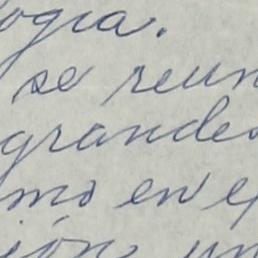 ogia.
se reun
grandes
mo en e
ión un